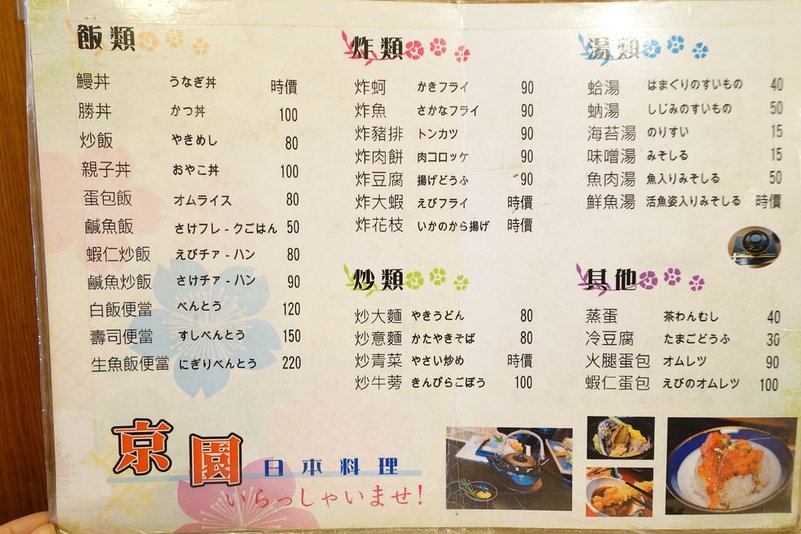 飯類
鰻丼 うなぎ丼 時價
勝丼 かつ丼 100
炒飯 やきめし 80
親子丼 おやこ丼 100
蛋包飯 オムライス 80
鹹魚飯 さけフレ-クごはん 50
蝦仁炒飯 えびチァ-ハン 80
鹹魚炒飯 さけチァ-ハン 90
白飯便當 べんとう 120
壽司便當 すしべんとう 150
生魚飯便當 にぎりべんとう 220
炸類
炸蚵 かきフライ 90
炸魚 さかなフライ 90
炸豬排 トンカツ 90
炸肉餅 肉コロッケ 90
炸豆腐 揚げどうふ 90
炸大蝦 えびフライ 時價
炸花枝 いかのから揚げ 時價
炒類
炒大麵 やきうどん 80
炒意麵 かたやきそば 80
炒青菜 やさい炒め 時價
炒牛蒡 きんぴらごぼう 100
湯類
蛤湯 はまぐりのすいもの 40
蚋湯 しじみのすいもの 50
海苔湯 のりすい 15
味噌湯 みそしる 15
魚肉湯 魚入りみそしる 50
鮮魚湯 活魚姿入りみそしる 時價
其他
蒸蛋 茶わんむし 40
冷豆腐 たまごどうふ 30
火腿蛋包 オムレツ 90
蝦仁蛋包 えびのオムレツ 100
京園 日本料理
いらっしゃいませ!